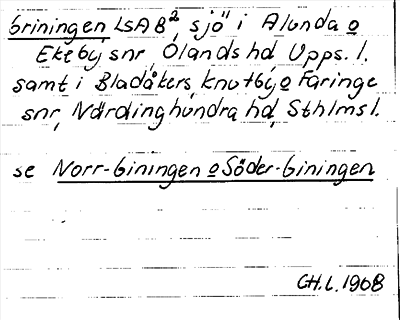 Griningen LSAB², sjö i Alunda o
Ekeby snr, Olands hd, Upps. l.
samt i Bladåkers, Knutby o Faringe
snr, Närdinghundra hd, Sthlms l.
se Norr-Giningen o Söder-Giningen
CH.L. 1968